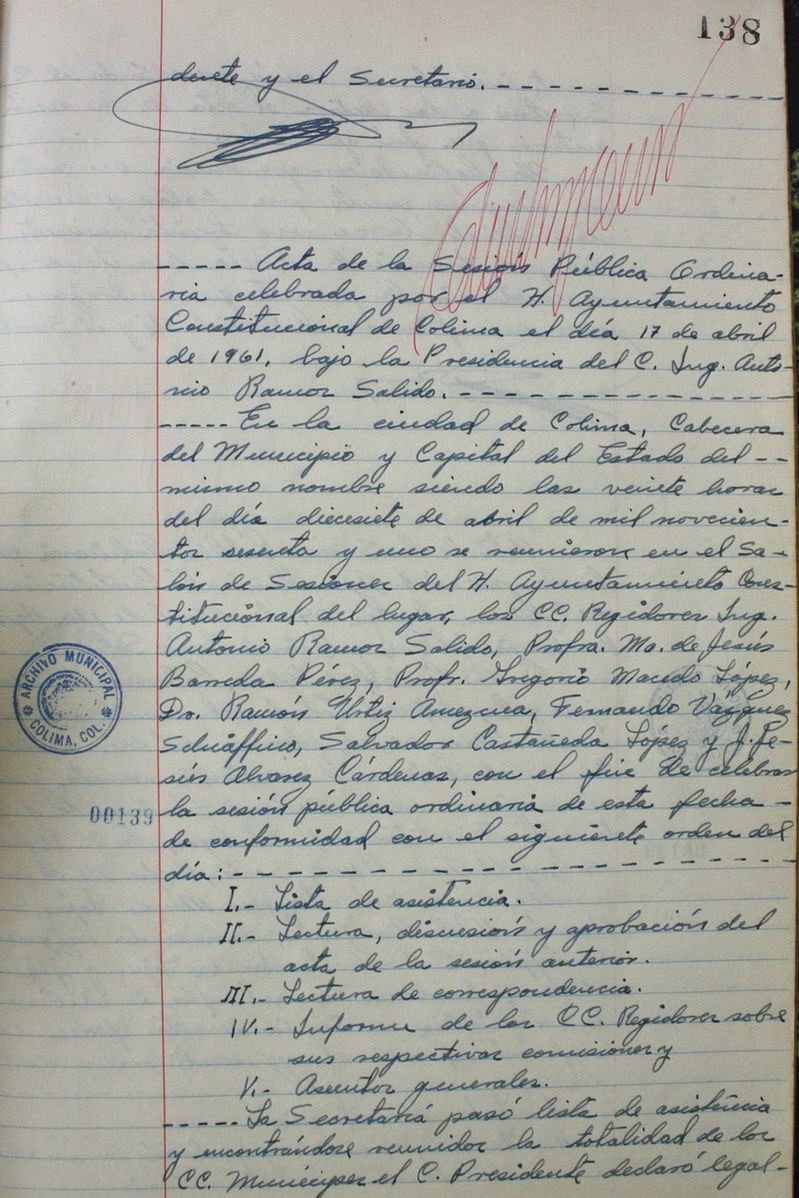 138
dente y el Secretario. - - - - - - - - - - -
- - - - - Acta de la Sesión Pública Ordina-
ria celebrada por el H. Ayuntamiento
Constitucional de Colima el día 17 de abril
de 1961, bajo la Presidencia del C. Ing. Anto-
nio Ramos Salido. - - - - - - - - - - - - - -
- - - - - En la ciudad de Colima, Cabecera
del Municipio y Capital del Estado del - -
mismo nombre siendo las veinte horas
del día diecisiete de abril de mil novecien-
tos sesenta y uno se reunieron en el Sa-
lón de Sesiones del H. Ayuntamiento Cons-
titucional del lugar, los CC. Regidores Ing.
Antonio Ramos Salido, Profra. Ma. de Jesús
Barreda Pérez, Profr. Gregorio Macedo López,
Dr. Ramón Urtiz Amezcua, Fernando Vázquez
Schiaffino, Salvador Castañeda López y J. Je-
sús Alvarez Cárdenas, con el fin de celebrar
la sesión pública ordinaria de esta fecha -
de conformidad con el siguiente orden del
día: - - - - - - - - - - - - - - - - - - - -
I.- Lista de asistencia.
II.- Lectura, discusión y aprobación del
acta de la sesión anterior.
III.- Lectura de correspondencia.
IV.- Informe de los CC. Regidores sobre
sus respectivas comisiones y
V.- Asuntos generales.
- - - - - La Secretaría pasó lista de asistencia
y encontrándose reunidos la totalidad de los
CC. Munícipes el C. Presidente declaró legal-
ARCHIVO MUNICIPAL
COLIMA, COL.
00139